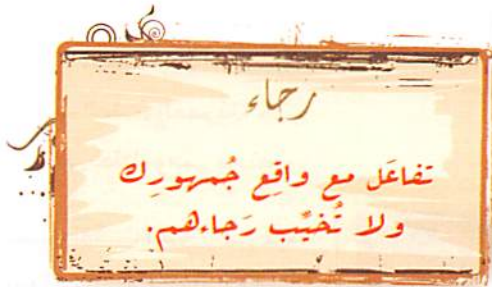 رجاء
تفاعَل مع واقِع جُمهورِك
ولا تُخيِّب رَجاءهم.